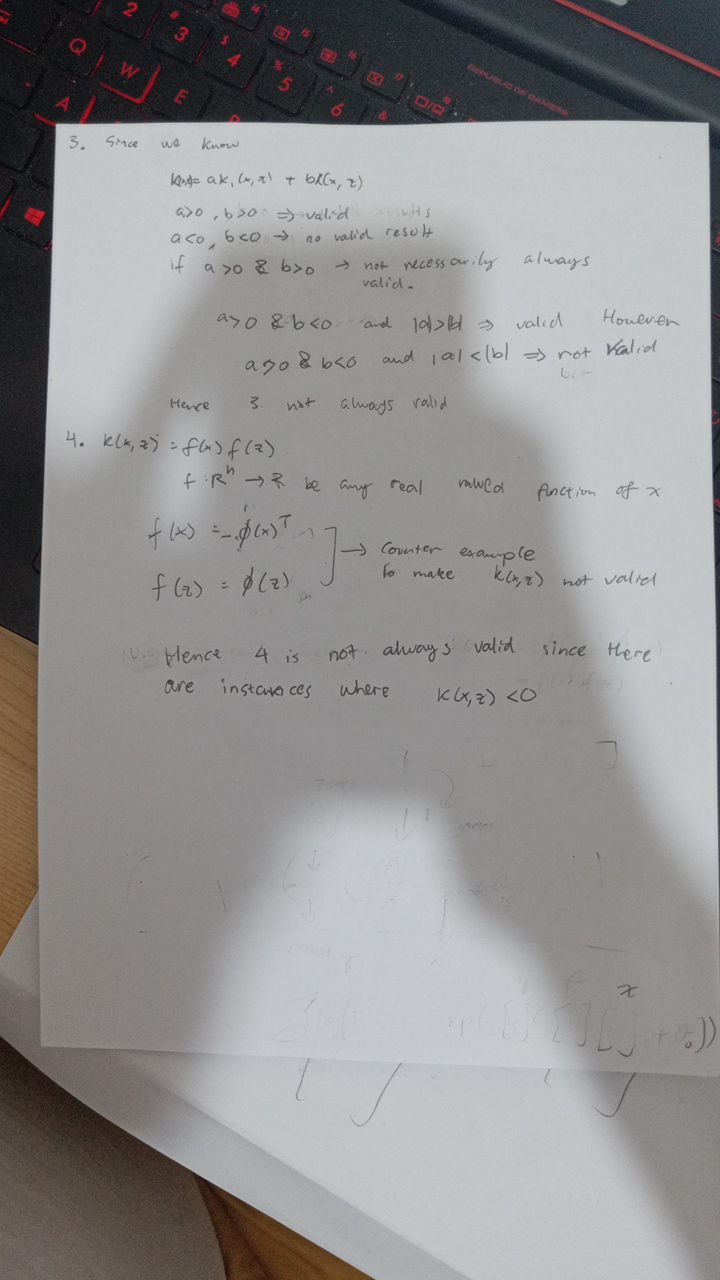 REPUBLIC OF GAMERS
2
3
4
5
6
Q
W
E
A
3. Since we know
= ak₁(x,z) + bk(x,z)
a>0, b>0 => valid results
a<0, b<0 → no valid result
if a>0 & b>0 → not necessarily always
valid.
a>0 & b<0 and |a|>|b| => valid However
a>0 & b<0 and |a|<|b| => not valid
Hence 3 not always valid
4. k(x,z) = f(x) f(z)
f: Rⁿ → R be any real valued function of x
f(x) = -ϕ(x)ᵀ
f(z) = ϕ(z)
→ Counter example
to make k(x,z) not valid
Hence 4 is not always valid since there
are instances where k(x,z) <0
x